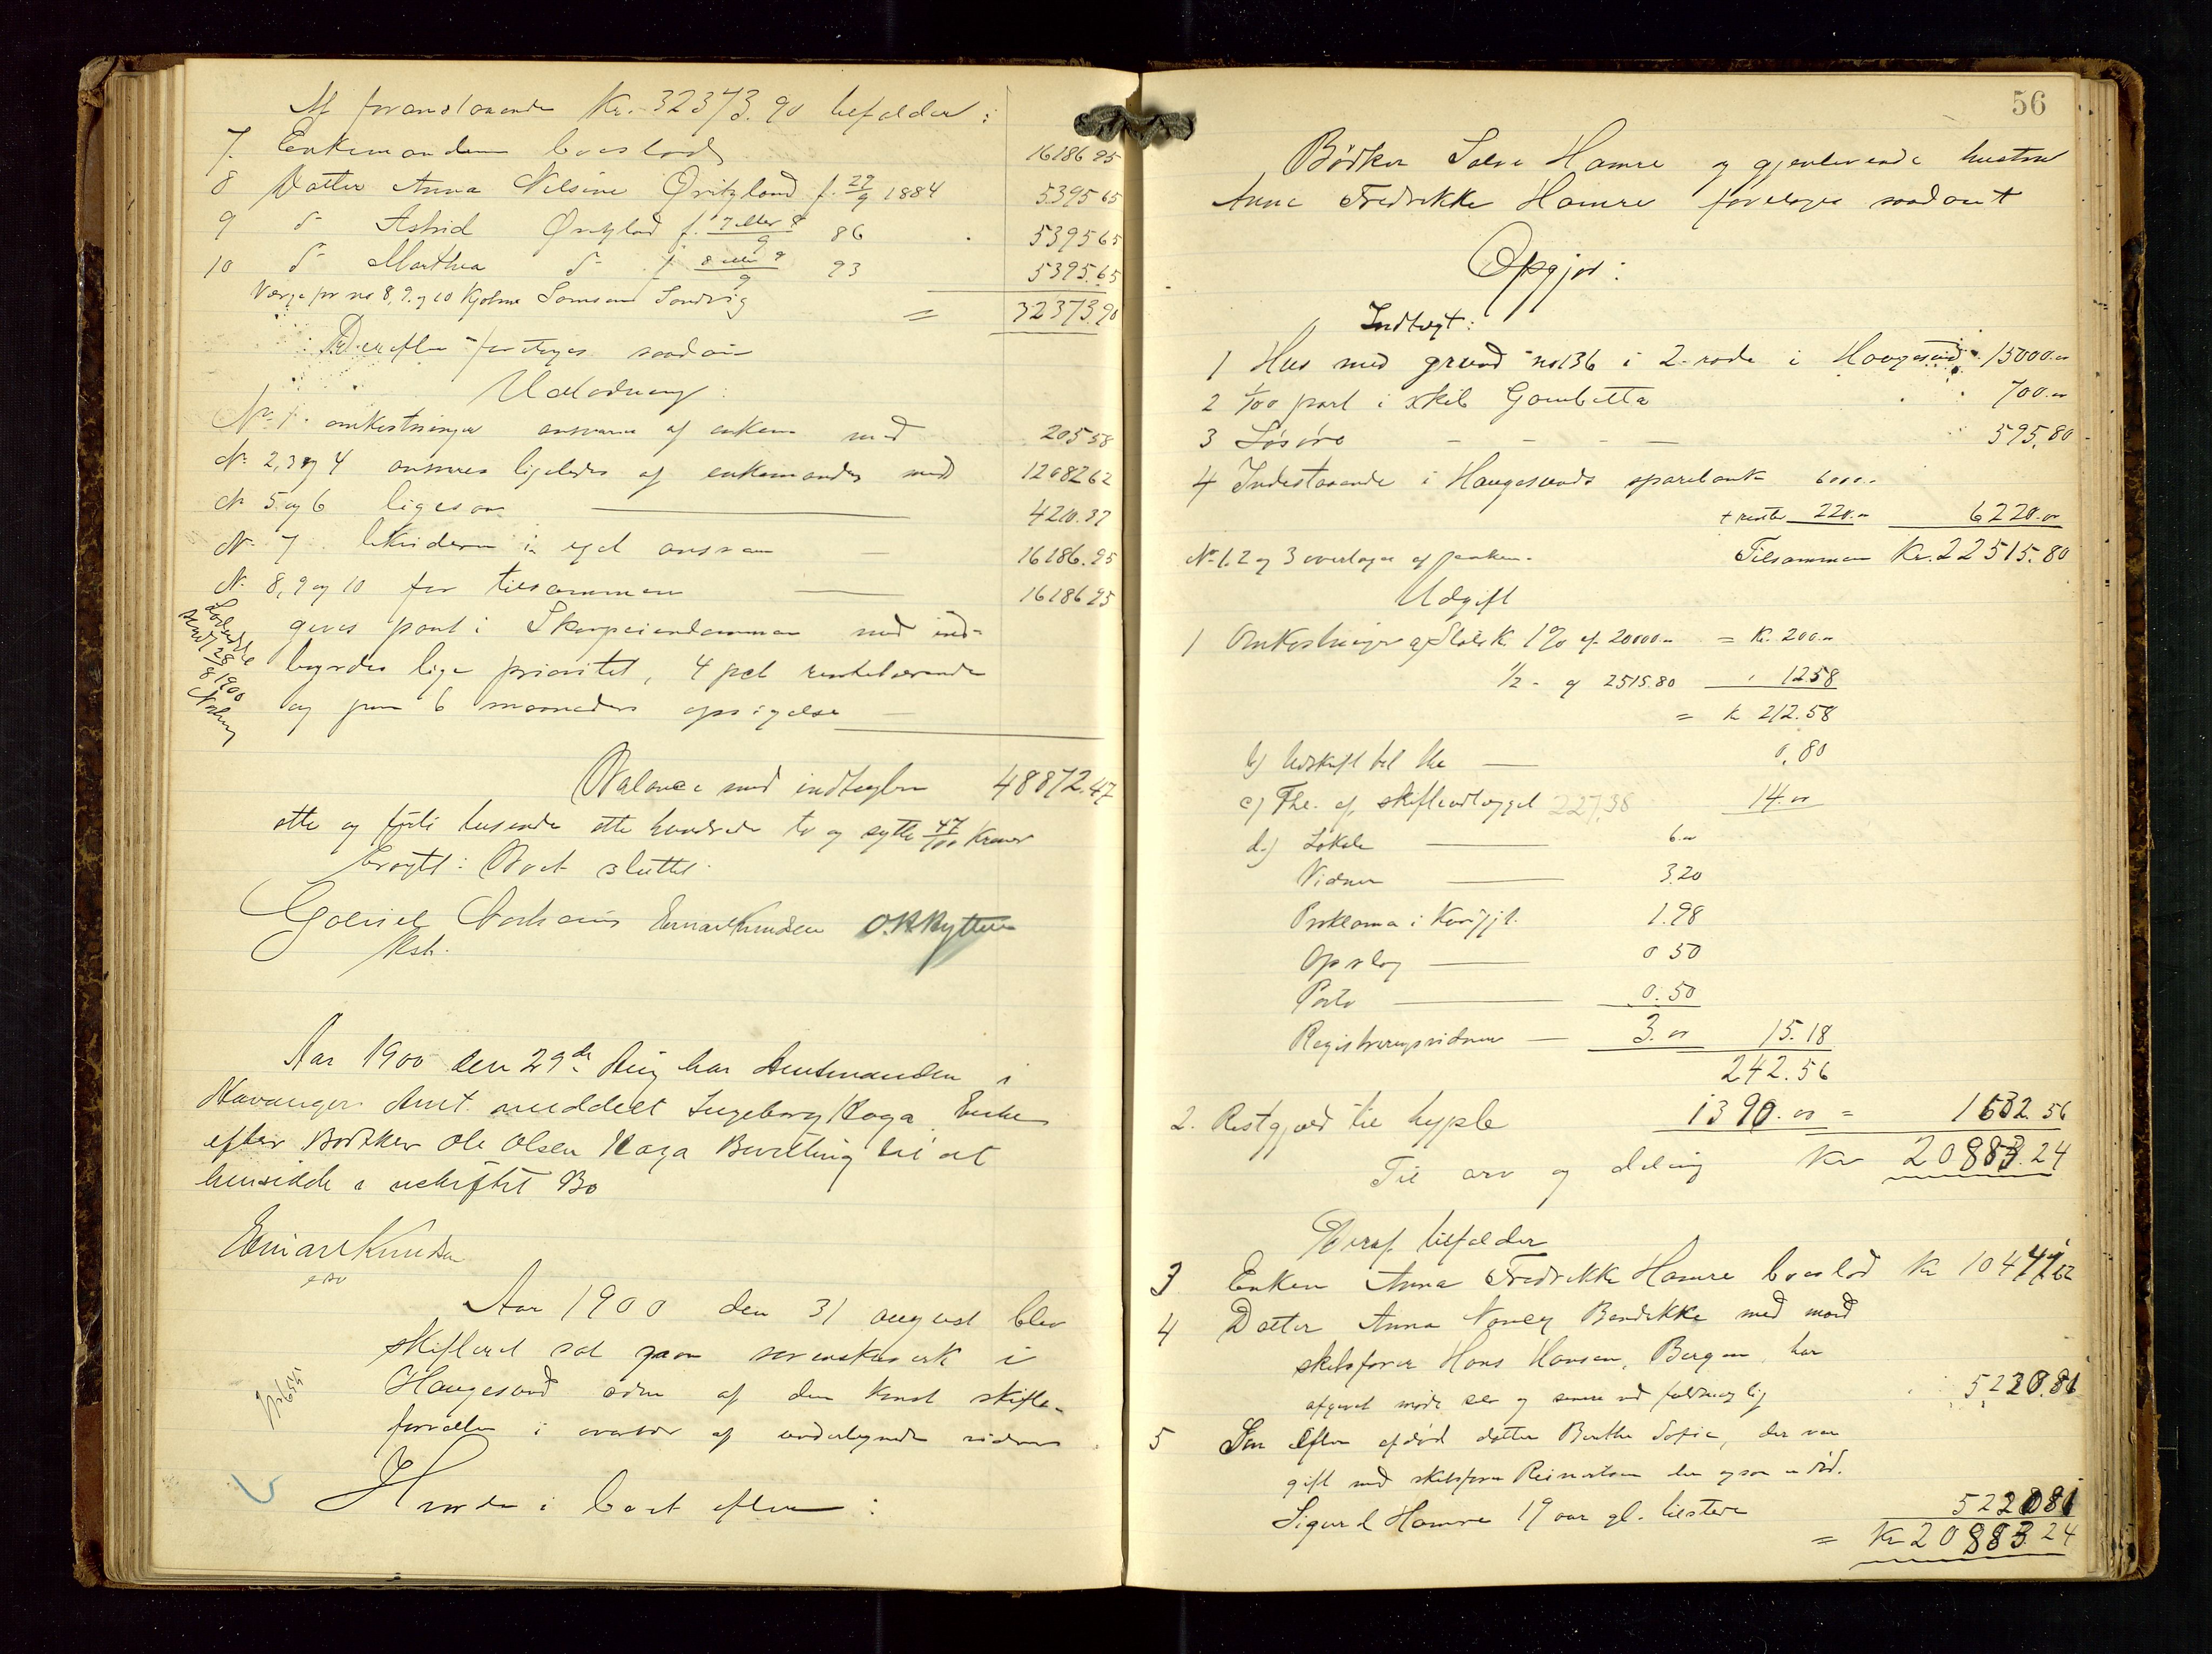 Af foranstaaende Kr. 32373.90 tilfalder:
7. Enkemanden boeslod 16186 95
8 Datter Anna Nilsine Qvitzland f. 29/9 1884 5395 65
9 d° Astrid Qvitzland f. 7 eller 8/9 86 5395 65
10 d° Martha d° f. 8 eller 9/9 93 5395.65
Verge for no 8, 9 og 10 Kjolme Samson Sandvig
= 32373.90
Derefter foretoges saadan
Udlodning:
No 1. omkostninger ansvares af enkem med 205 58
No 2, 3 og 4 ansvares ligeledes af enkemanden med 12082 62
No 5 og 6 ligesaa 4210.37
No 7 beholder i eget ansvar 16186.95
No 8, 9 og 10 for tilsammen 16186 95
gives pant i eiendommen med ind-
byrdes lige prioritet, 4 pct rentebærende
og paa 6 maaneders opsigelse
28/8 1900
Balance med indtægten 48872.47
otte og firti tusende otte hundrede to og sytti 47/100 Kroner
Boet sluttet.
Einar Knudsen
Kst.
Aar 1900 den 29de Aug har Amtmanden i
Stavanger Amt meddelt Ingeborg Haga Enke
efter Bødker Ole Olsen Haga Bevilling til at
hensidde i uskiftet Bo
Einar Knudsen
Aar 1900 den 31 august blev
skifteret sat paa sorenskriverk i
Haugesund adm af den konst skifte-
forvalter i overvær af undertegnede vidner
Hvorda i boet efter:
56
Bödker Salve Hamre og gjenlevende hustru
Anna Fredrikke Hamre foretoges saadant
Opgjør:
Indtægt:
1 Hus med grund no 136 i 2. rode i Haugesund 15000.00
2 1/100 part i skib Gambetta 700.00
3 Løsøre 595.80
4 Indestaaende i Haugesunds sparebank 6000.-
+ rente 220.00 6220.00
No 1, 2 og 3 overtages af enken. Tilsammen Kr. 22515.80
Udgift
1 Omkostninger a) 1% af 20000.- = Kr. 200.00
1/2 - af 2515.80 12.58
= Kr 212.58
b) Udskrift til 0.80
c) af skifteudlægget 227,38 14.00
d.) Lokale 6.00
Vidner 3.20
Proklama i 1.98
Opslag 0 50
Porto 0.50
Registreringsvidner 3.00 15.18
242.56
2. Restgjæld til hypbk 1390.00 = 1632.56
Til arv og deling Kr 20883.24
Deraf tilfalder
3 Enken Anna Fredrikke Hamre boeslod Kr 10441 62
4 Datter Anna Nancy Bendikke med mand
skibsfører Hans Hansen, Bergen, har
5220.81
5 Søn efter afdød datter Berthe Sofie, der var
gift med skibsfører Reinertsen der ogsaa er død.
Sigurd Hamre 19 aar gl. tilstede 5220 81
= Kr 20883.24